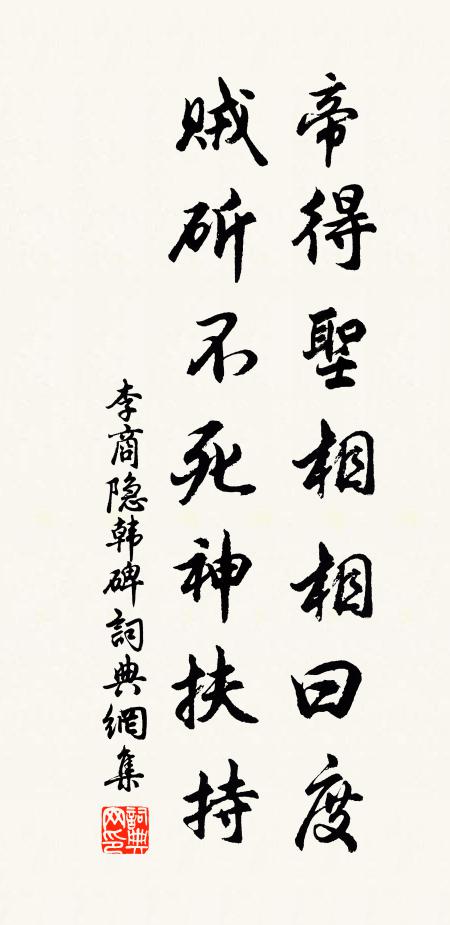 帝得聖相相曰度
賊斫不死神扶持
李商隐韩碑詞典網集
詞典网印